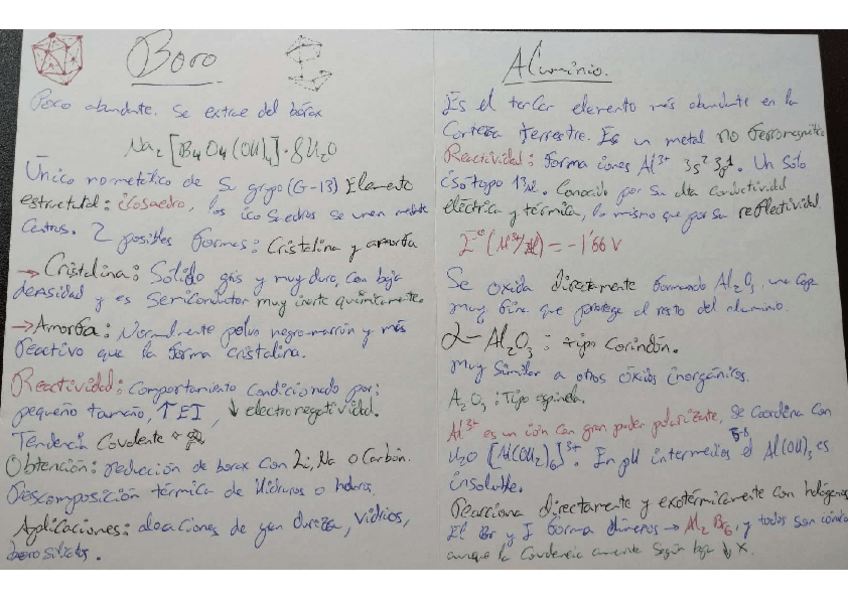 Boro
Poco abundante. Se extrae del bórax
Na₂[B₄O₄(OH)₄]·8H₂O
Único no metálico de su grupo (G-13) Elemento
estructural: icosaedro, los icosaedros se unen
Centros. 2 posibles formas: Cristalina y amorfa
→ Cristalina: Sólido gris y muy duro, con baja
densidad y es Semiconductor muy inerte químicamente.
→ Amorfa: Normalmente polvo negro-marrón y más
reactivo que la forma cristalina.
Reactividad: Comportamiento condicionado por:
pequeño tamaño, ↑EI, ↓electronegatividad.
Tendencia Covalente
Obtención: reducción de borax con Li, Na o Carbón.
Descomposición térmica de Hidruros o
Aplicaciones: aleaciones de gran dureza, vidrios,
borosilicatos.
Aluminio.
Es el tercer elemento más abundante en la
Corteza terrestre. Es un metal no ferromagnético
Reactividad: forma iones Al³⁺ 3s² 3p¹. Un solo
isótopo. Conocido por su alta conductividad
eléctrica y térmica, lo mismo que por su reflectividad.
E°(Al³⁺/Al) = -1'66 V
Se oxida directamente formando Al₂O₃, una capa
muy fina que protege el resto del aluminio.
α-Al₂O₃: tipo Corindón.
Muy Similar a otros óxidos inorgánicos.
A₂O₃: Tipo espinela.
Al³⁺ es un ión con gran poder polarizante, Se coordina con
H₂O [Al(OH₂)₆]³⁺. En pH intermedios 5-8 el Al(OH)₃ es
insoluble.
Reacciona directamente y exotérmicamente con halógenos
El Br y I forma dímeros → Al₂Br₆, y todos son iónicos
aunque la Covalencia aumenta según baja ↓ X.